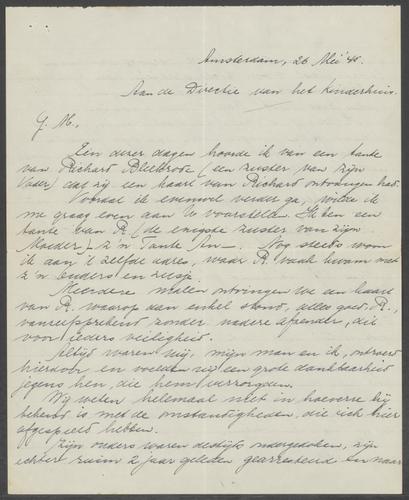 Amsterdam, 26 Mei '45.
Aan de Directie van het Kinderhuis.
G. M.,
Een dezer dagen hoorde ik van een tante
van Richard Bleekrode (een zuster van zijn
Vader) dat zij een kaart van Richard ontvangen had.
Voordat ik evenwel verder ga, wilde ik
me graag even aan U voorstellen. Ik ben een
tante van R. (de enigste zuster van zijn
Moeder) – z'n Tante – . Nog steeds woon
ik aan 't zelfde adres, waar R. vaak kwam met
z'n ouders en zusje.
Meerdere malen ontvingen we een kaart
van R. waarop dan enkel stond, alles goed R.,
vanzelfsprekend zonder nadere afzender, dit
voor ieders veiligheid.
Altijd waren wij, mijn man en ik, ontroerd
hierdoor en voelden wij een grote dankbaarheid
jegens hen, die hem verzorgden.
Wij weten helemaal niet in hoeverre hij
bekend is met de omstandigheden, die zich hier
afgespeeld hebben.
Zijn ouders waren destijds ondergedoken, zijn
echter ruim 2 jaar geleden gearresteerd en naar